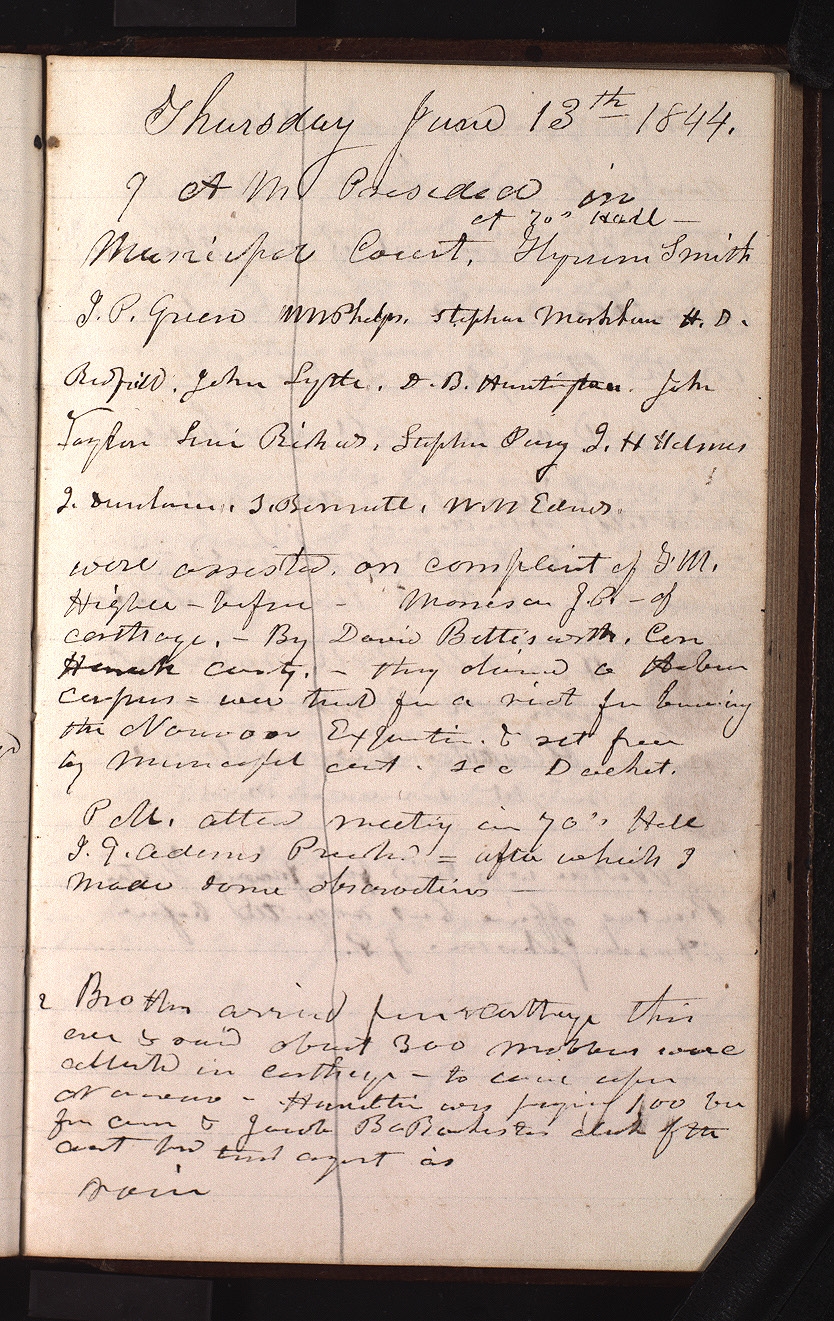 Thursday June 13th 1844.
9 A M. Presided in
at 70s Hall —
Municipal Court. Hyrum Smith
J. P. Green W W Phelps. Stephen Markham H. D.
Redfield. John Lytle. D. B. Huntington. John
Taylor Levi Richards, Stephen Perry J. H Holmes
J. Dunham. S. Bennett. W. W Edwards
were arrested. on complaint of F. M.
Higbee – before – Morrison J.P. – of
carthage. – By David Bettisworth. Con
Hancock county. – they claimed a Habeus
corpus = were tried for a riot for burning
the Nauvoo Expositor. & set free
by Municipal court. see Docket.
P M. attend meeting in 70's Hall
G. J. Adams Preachd = after which I
made some observations —
2 Brothers arrived from carthage this
eve & said about 300 mobbers were
collected in carthage – to come upon
Nauvoo – Hamilton was paying 1,00 bu
for corn & Jacob B. Backestos clerk of the
court
rain